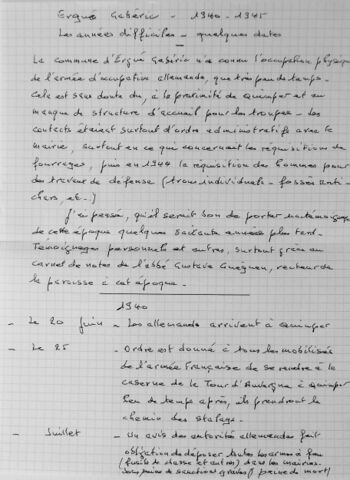 Ergué Gabéric - 1940 - 1945
Les années difficiles - quelques dates
La commune d'Ergué Gabéric n'a connu l'occupation physique
de l'armée d'occupation allemande, que très peu de temps -
Cela est sans doute dû, à la proximité de Quimper et au
manque de structure d'accueil pour les troupes - Les
contacts étaient surtout d'ordre administratifs avec la
mairie, surtout en ce qui concernait les réquisitions de
fourrages, puis en 1944 la réquisition des hommes pour
des travaux de défense (trous individuels - fossés anti-
chars, etc..)
J'ai pensé, qu'il serait bon de porter un témoignage
de cette époque quelques soixante années plus tard -
Témoignages personnels et autres, surtout grâce au
carnet de notes de l'abbé Gustave Guéguen, recteur de
la paroisse à cet époque -
1940
- Le 20 juin - Les allemands arrivent à Quimper
- Le 25 - Ordre est donné à tous les mobilisés
de l'armée Française de se rendre à la
caserne de la Tour d'Auvergne à Quimper
Peu de temps après, ils prendront le
chemin des stalags -
- Juillet - Un avis des autorités allemandes fait
obligation de déposer toutes les armes à feu
(fusils de chasse et autres) dans les mairies -
sous peine de sanctions graves (peine de mort)